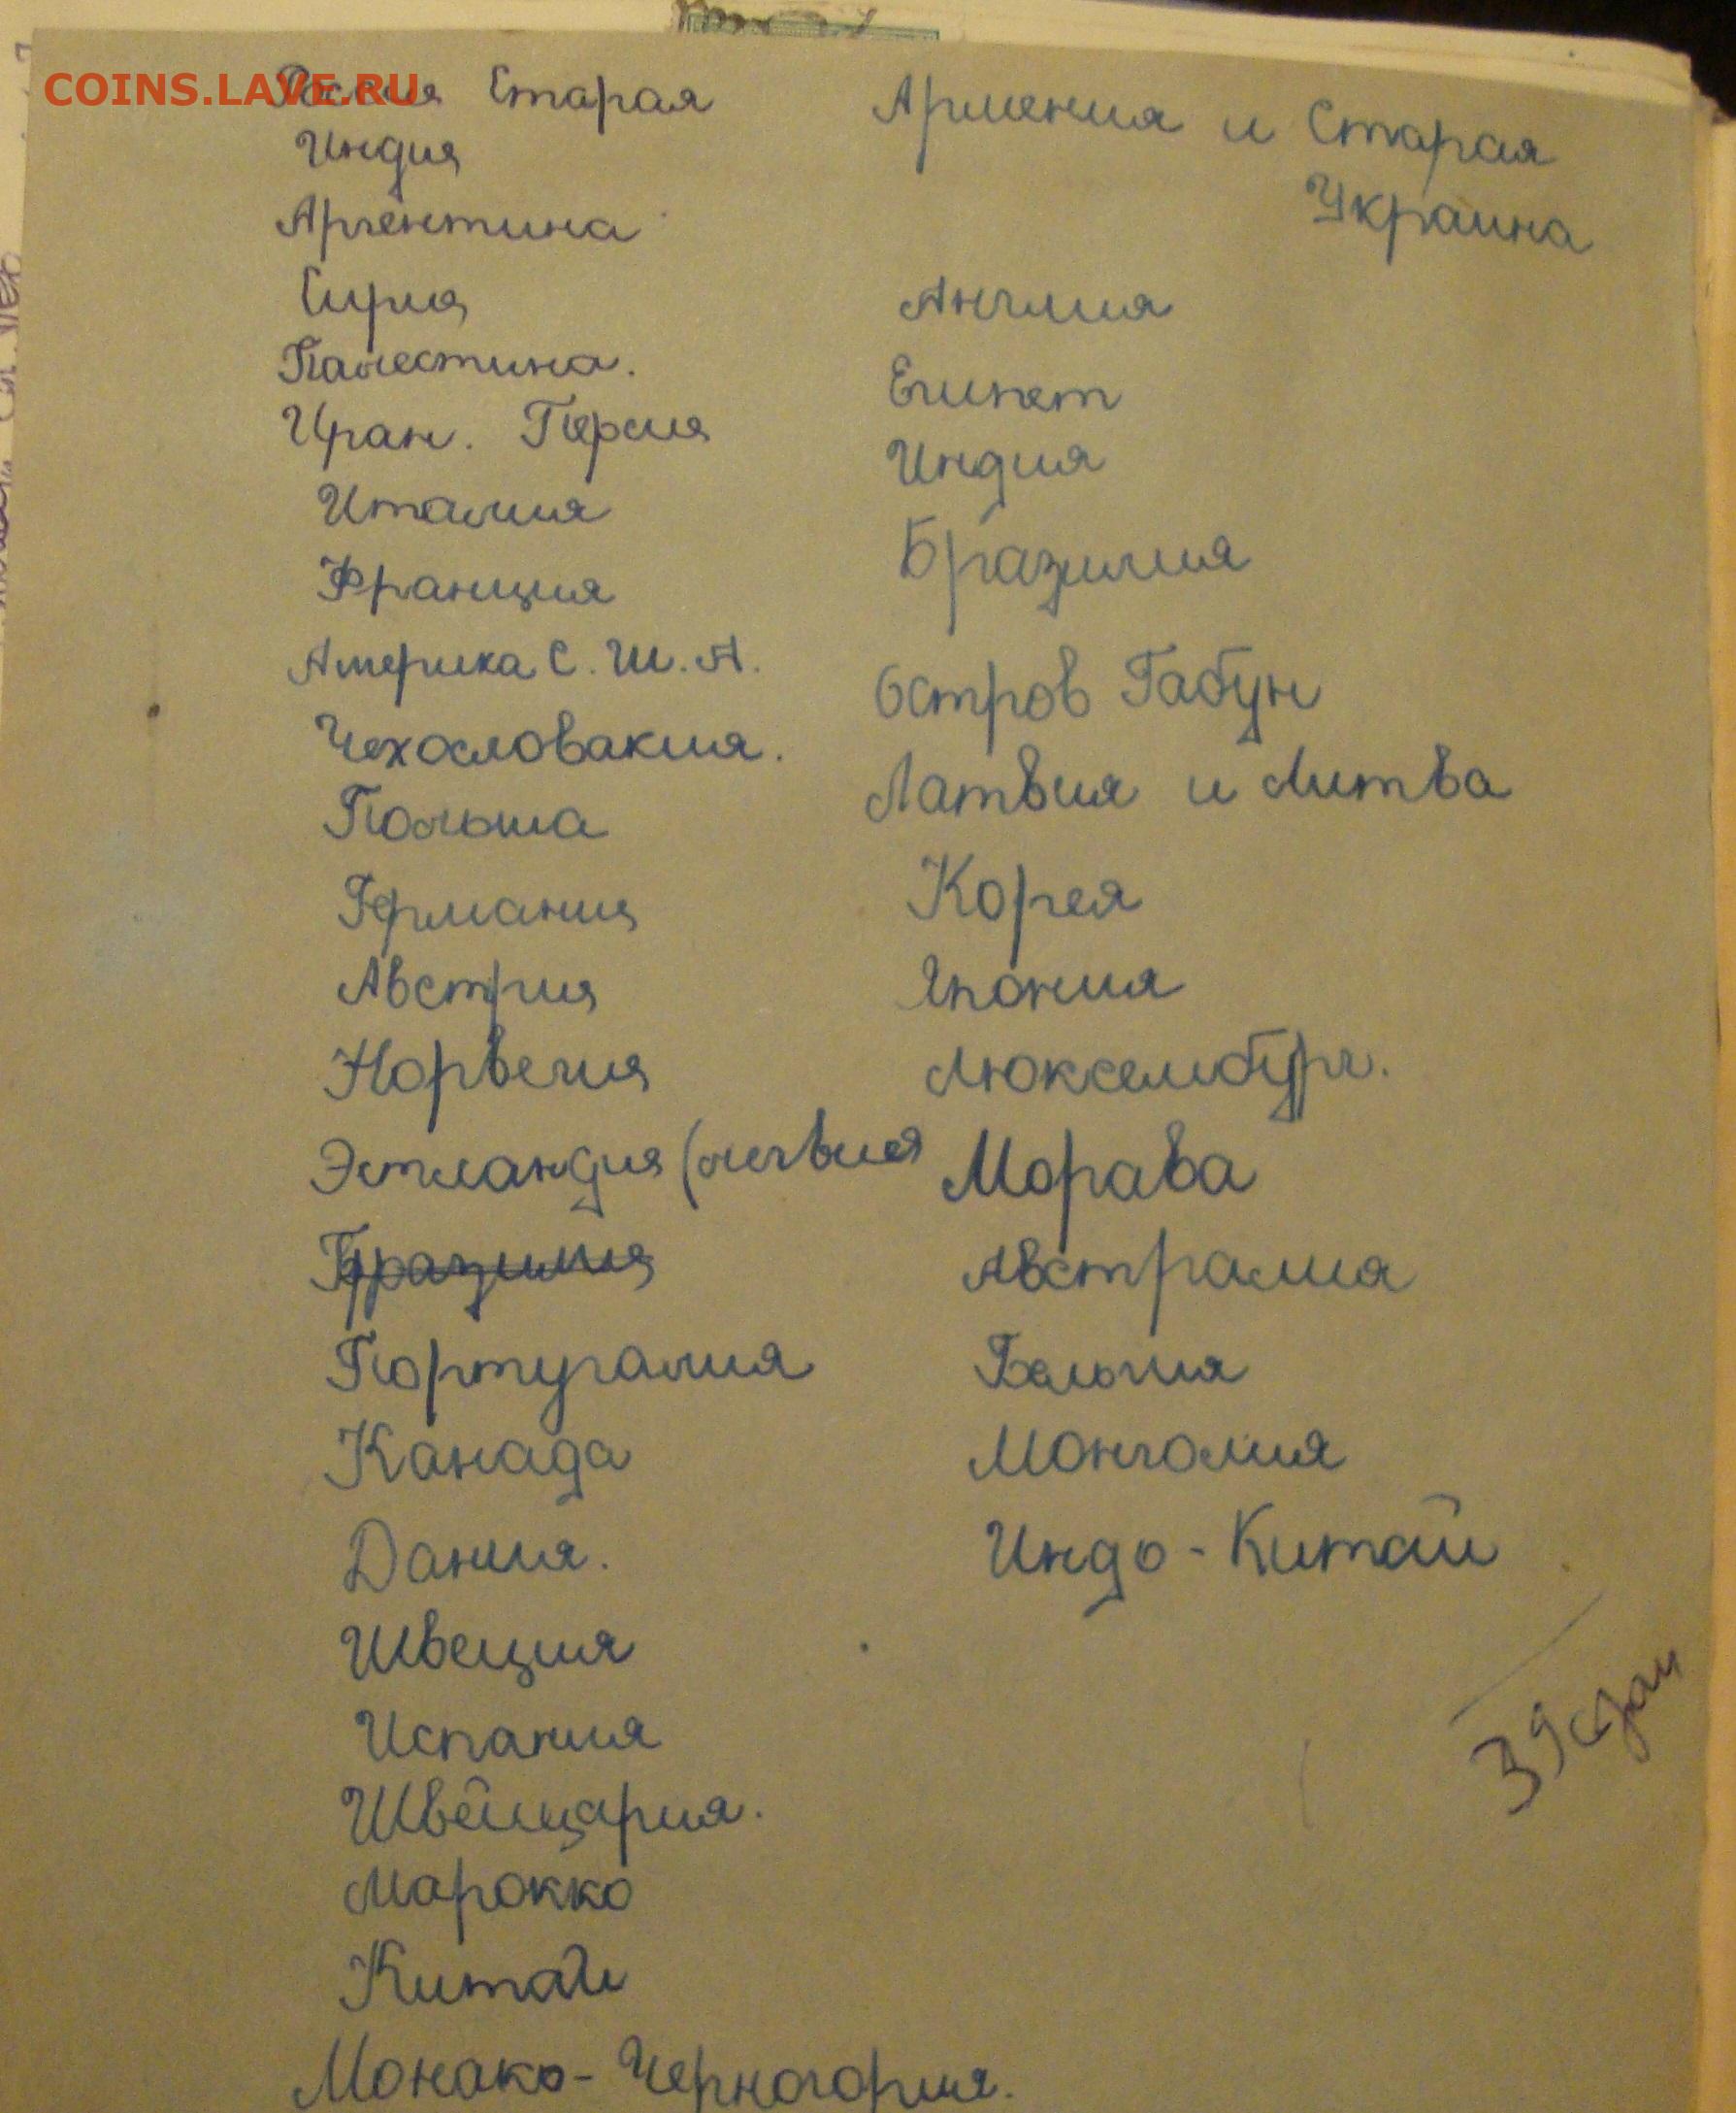 COINS.LAVE.RU
Россия Старая
Индия
Аргентина
Сирия
Палестина.
Иран. Персия
Италия
Франция
Америка С. Ш. А.
Чехословакия.
Польша
Германия
Австрия
Норвегия
Эстляндия (
Бразилия
Португалия
Канада
Дания.
Швеция
Испания
Швейцария.
Марокко
Китай
Монако - Черногория.
Армения и Старая
Украина
Англия
Египет
Индия
Бразилия
Остров Габун
Латвия и Литва
Корея
Япония
Люксембург.
Морава
Австралия
Бельгия
Монголия
Индо - Китай
39 стран